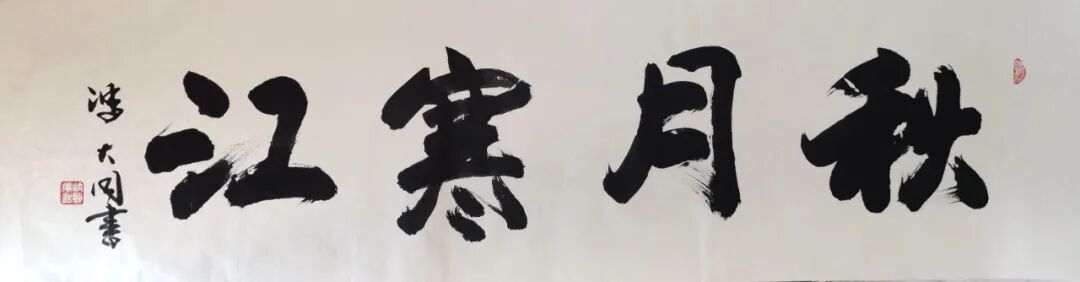 秋月寒江
大同書